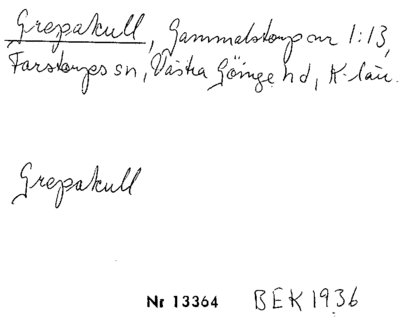 Grepakull, Gammalstorp nr 1:13,
Farstorps sn, Västra Göinge hd, K-län.
Grepakull
Nr 13364 BEK 1936